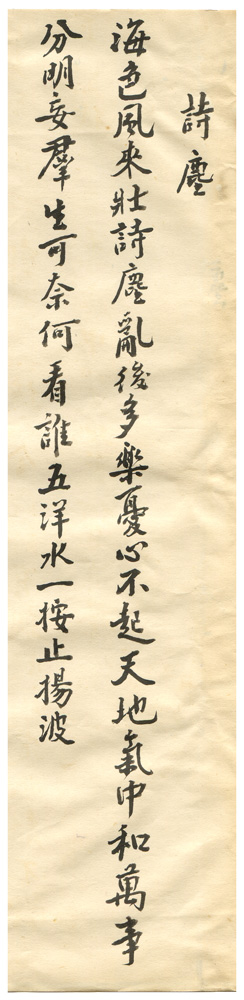 詩塵
海色風來壯詩塵亂後多樂憂心不起天地氣中和萬事
分明妄羣生可奈何看誰五洋水一按止揚波